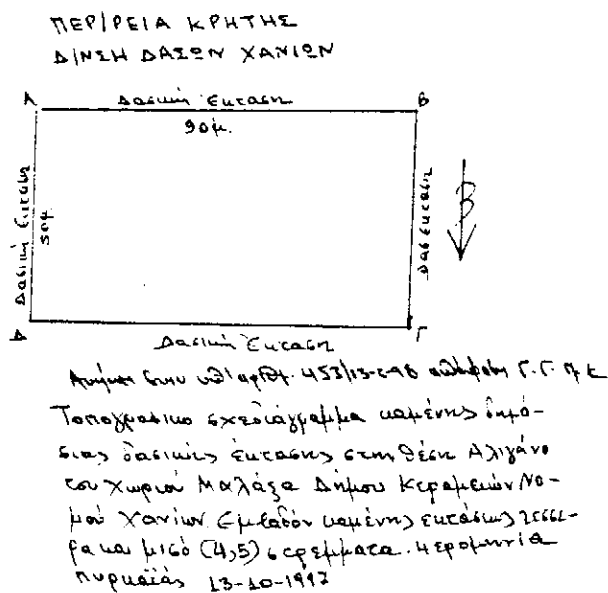 ΠΕΡ/ΡΕΙΑ ΚΡΗΤΗΣ
Δ/ΝΣΗ ΔΑΣΩΝ ΧΑΝΙΩΝ
Α Δασική Έκταση Β
90μ.
Δασική Έκταση
50μ.
Δασ Έκταση
Β
Δ Γ
Δασική Έκταση
Ανήκει στην υπ' αριθμ. 453/13-2-98 απόφαση Γ.Γ.Π.Κ
Τοπογραφικο σχεδιάγραμμα καμένης δημό-
σιας δασικής έκτασης στη θέση Αλιγάνο
του χωριού Μαλάξα Δήμου Κεραμειών Νο-
μού Χανίων Εμβαδόν καμένης εκτάσεως τέσσε-
ρα και μισό (4,5) στρεμματα. Ημερομηνία
πυρκαϊάς 13-10-1997